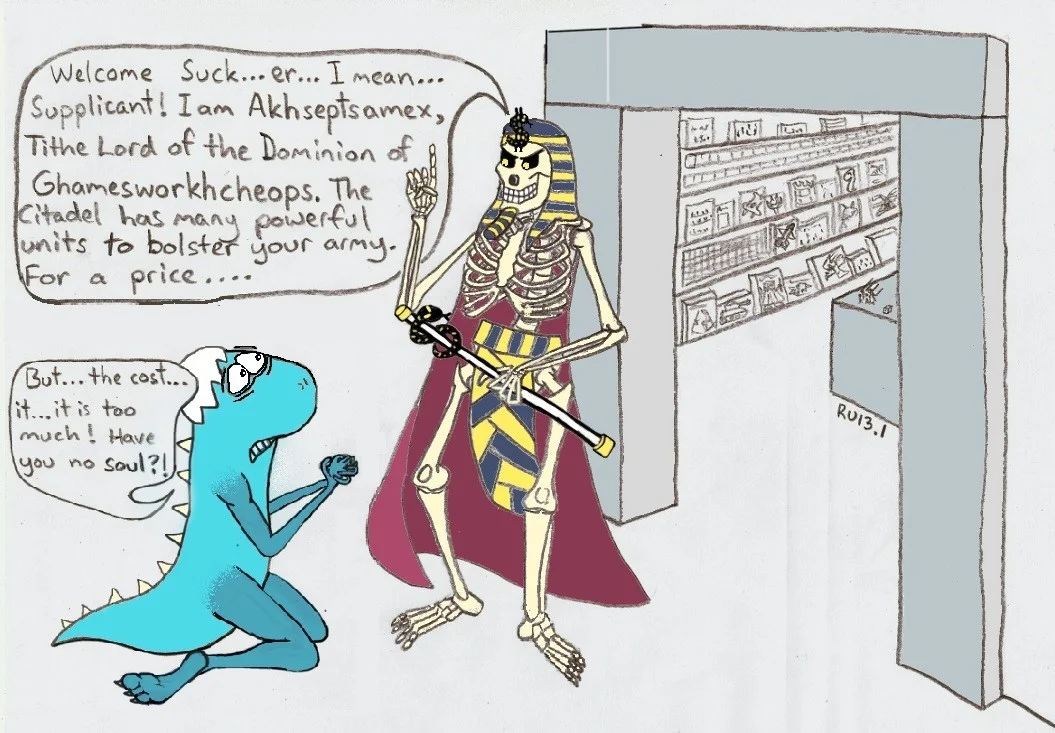 Welcome Suck...er... I mean...
Supplicant! I am Akhseptsamex,
Tithe Lord of the Dominion of
Ghamesworkhcheops. The
Citadel has many powerful
units to bolster your army.
For a price....
But... the cost...
it...it is too
much! Have
you no soul?!
RU13.1